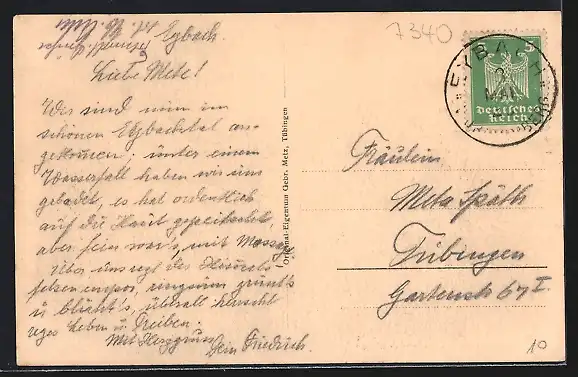 Eybach.
Liebe Mete!
Wir sind nun im
schönen Eybachtal an-
gekommen; unter einem
Wasserfall haben wir uns
gebadet, es hat ordentlich
auf die Haut gepeitschet,
aber fein war's, mit Massage
Über uns ragt der Himmels-
felsen empor, ringsum grünt's
u blüht's, überall herrscht
reges Leben u Treiben.
Mit Herzgruss
Dein Friedrich.
Original-Eigentum Gebr. Metz, Tübingen
7340
EYBACH
MAI
5
Deutsches
Reich
Fräulein
Meta Späth
Tübingen
Gartenstr 67 I
10